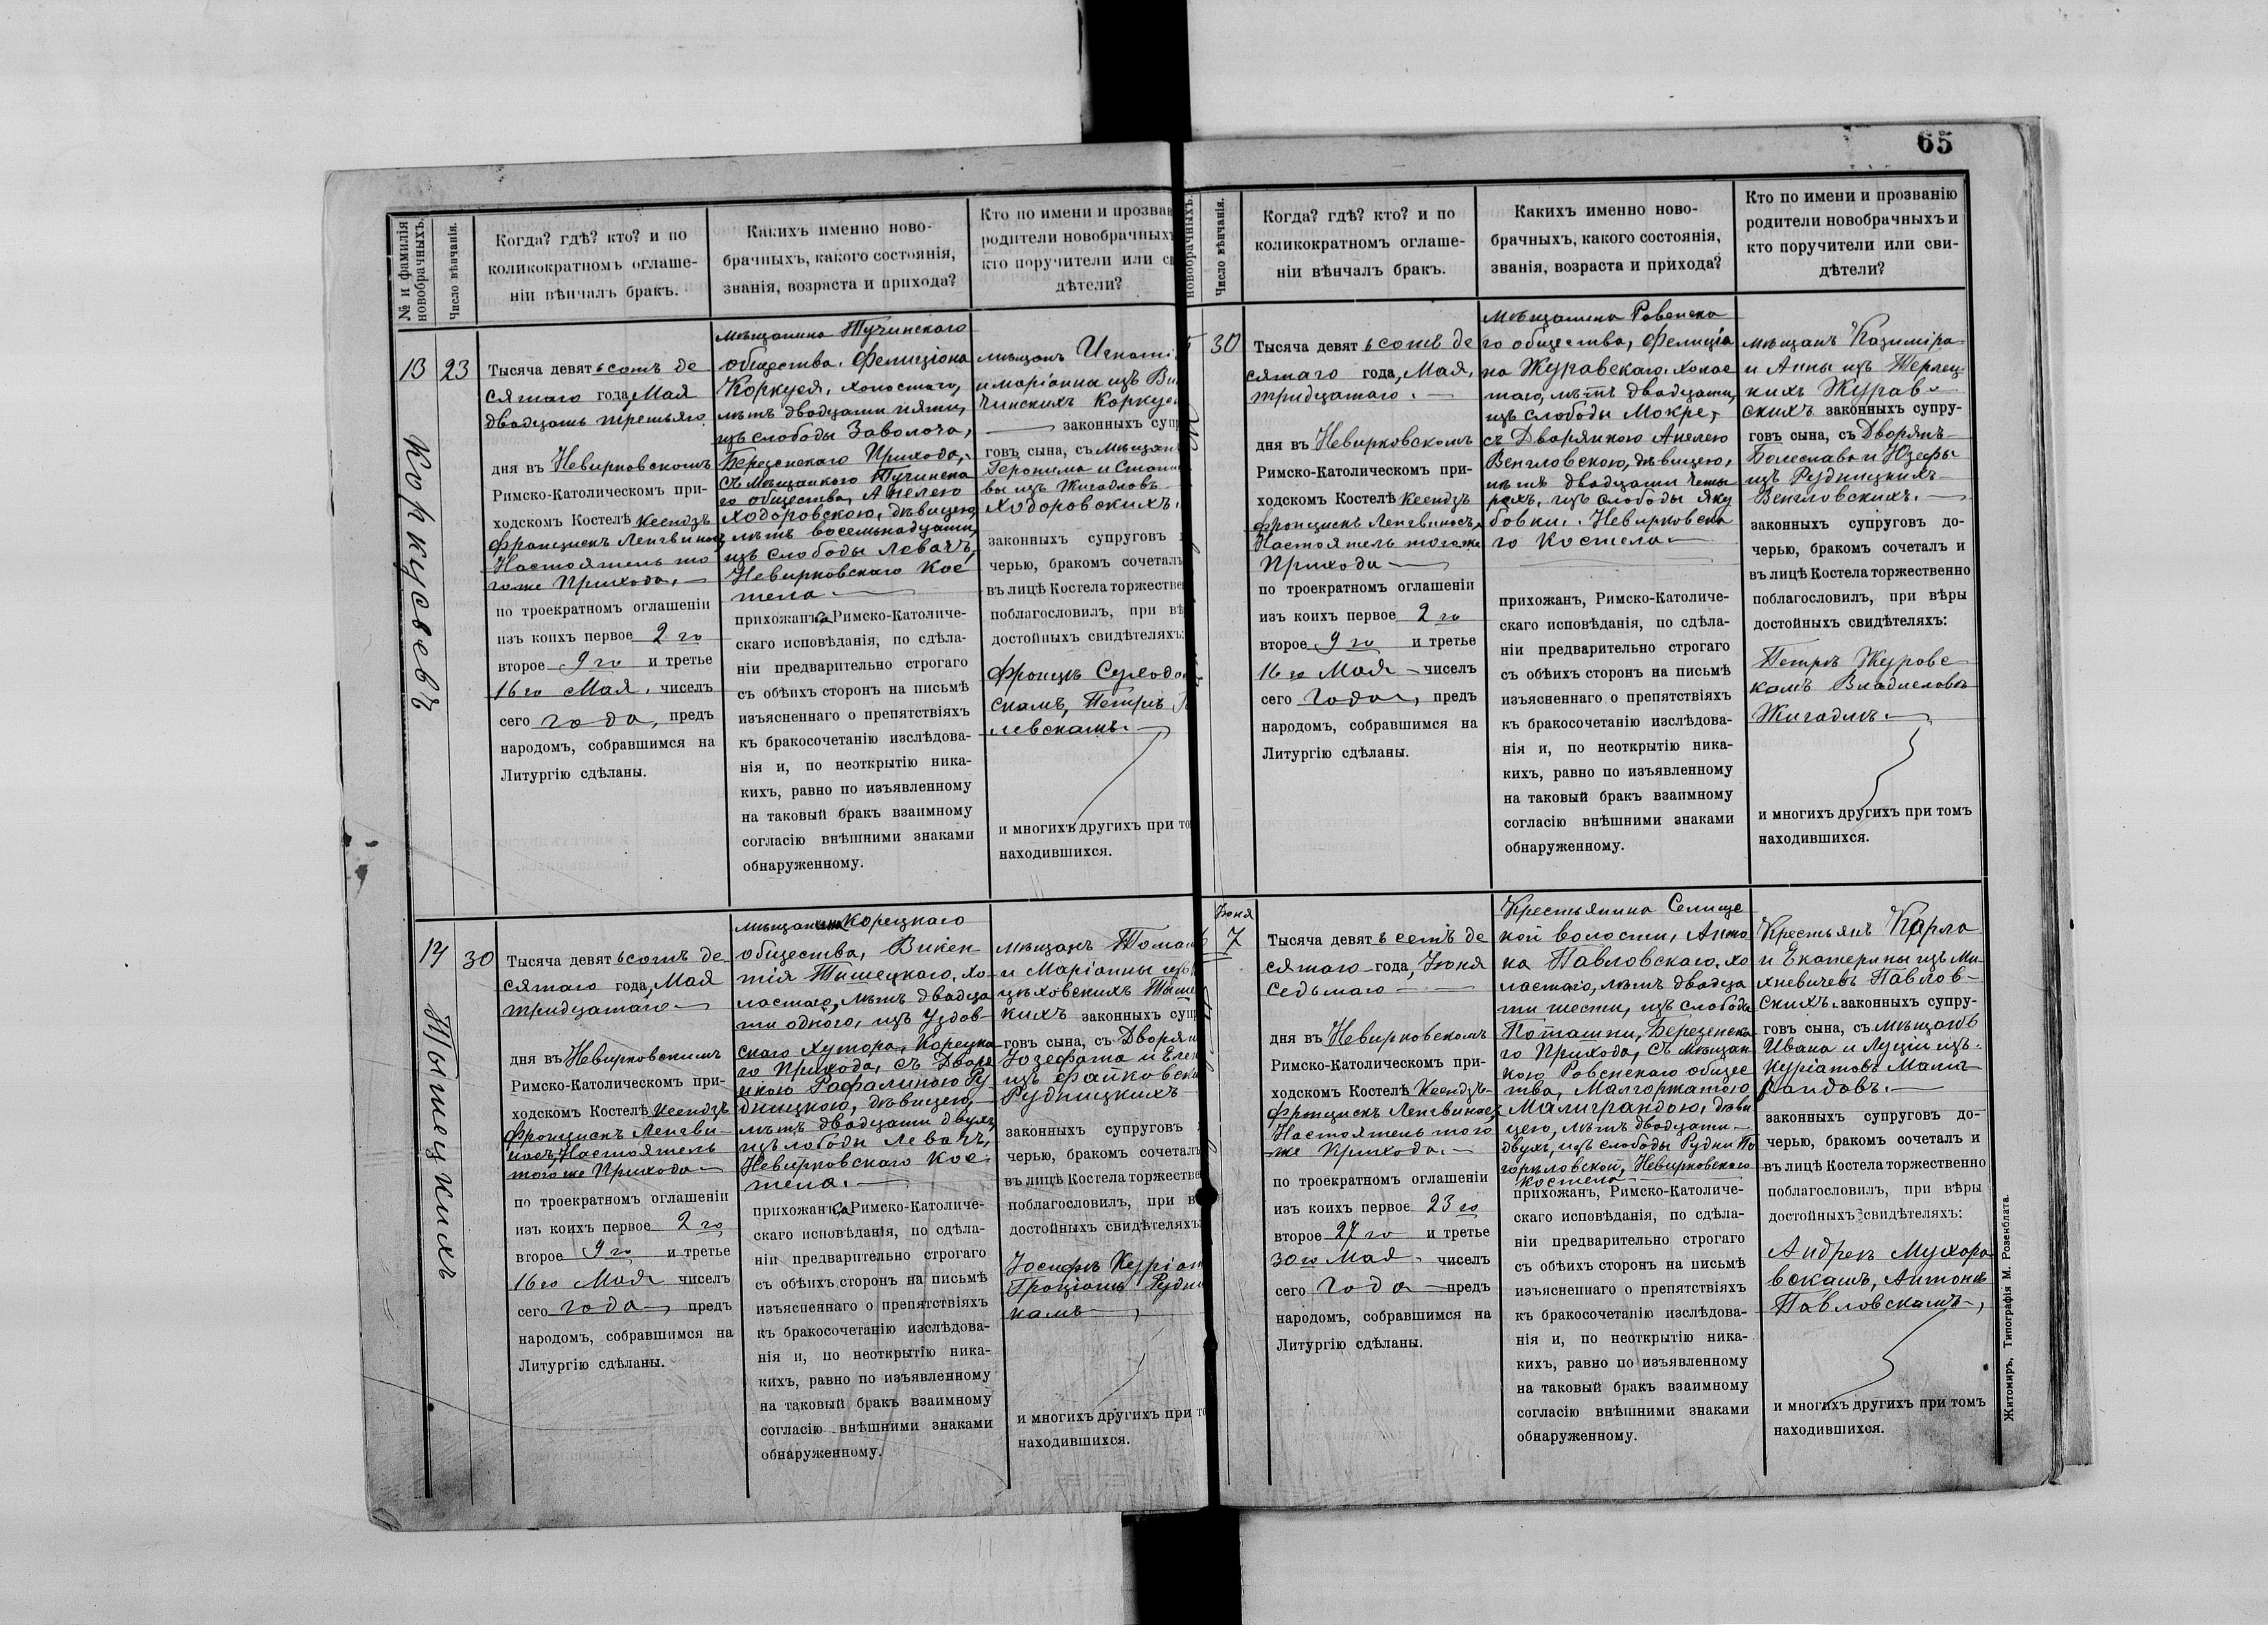 65
№ и фамилія
новобрачныхъ.
Число вѣнчанія.
Когда? гдѣ? кто? и по
коликократномъ оглаше-
ніи вѣнчалъ бракъ.
Какихъ именно ново-
брачныхъ, какого состоянія,
званія, возраста и прихода?
Кто по имени и прозван
родители новобрачныхъ
кто поручители или св
дѣтели?
13
Коркусевъ
23
Тысяча девятьсотъ де
сятаго года, Мая
двадцать третьяго
дня въ Невирковскомъ
Римско-Католическомъ при-
ходскомъ Костелѣ Ксендзъ
Францискъ Ленгвинасъ,
Настоятель то
гоже Прихода,
по троекратномъ оглашеніи
изъ коихъ первое 2 го
второе 9 го и третье
16 го Мая, чиселъ
сего года, предъ
народомъ, собравшимся на
Литургію сдѣланы.
мѣщанина Тучинскаго
общества, Фелиціана
Коркуся, холостаго,
лѣтъ двадцати пяти,
изъ слободы Заволоча,
Березнскаго Прихода,
съ мѣщанкою Тучинска
го общества, Анелею
Ходоровскою, дѣвицею,
лѣтъ восемьнадцати,
изъ слободы Левачъ,
Невирковскаго Кос
тела
прихожанъ Римско-Католиче-
скаго исповѣданія, по сдѣла-
ніи предварительно строгаго
съ обѣихъ сторонъ на письмѣ
изъясненнаго о препятствіяхъ
къ бракосочетанію изслѣдова-
нія и, по неоткрытію ника-
кихъ, равно по изъявленному
на таковый бракъ взаимному
согласію внѣшними знаками
обнаруженному.
мѣщанъ Игнаті
и Маріанны изъ Ви
чинскихъ Коркус
законныхъ супр
говъ, сына, съ мѣщанъ
Геронима и Стани
вы изъ Жигадловъ
Ходоровскихъ,
законныхъ супруговъ
черью, бракомъ сочеталъ
въ лицѣ Костела торжестве
поблагословилъ, при вѣ
достойныхъ свидѣтеляхъ:
Францъ
скамъ, Петръ
левскамъ.
и многихъ другихъ при то
находившихся.
14
Тышецкихъ
30
Тысяча девятьсотъ де-
сятаго года, Мая
тридцатаго
дня въ Невирковскимъ
Римско-Католическомъ при-
ходскомъ Костелѣ Ксендзъ
Францискъ Ленгви-
насъ, Настоятель
того же Прихода
по троекратномъ оглашеніи
изъ коихъ первое 2 го
второе 9 го и третье
16 го Мая чиселъ
сего года, предъ
народомъ, собравшимся на
Литургію сдѣланы.
мѣщанина Корецкаго
общества, Викен
тія Тышецкаго, хо-
лостаго, лѣтъ двадца
ти одного, изъ Уздов-
скаго Хутора, Корецка
го Прихода, съ Дворя
нкою Рафалиною Ру-
дницкою, дѣвицею,
лѣтъ двадцати двухъ,
изъ лободы Левачъ,
Невирковскаго Кос-
тела.
прихожанъ Римско-Католиче-
скаго исповѣданія, по сдѣла-
ніи предварительно строгаго
съ обѣихъ сторонъ на письмѣ
изъясненнаго о препятствіяхъ
къ бракосочетанію изслѣдова-
нія и, по неоткрытію ника-
кихъ, равно по изъявленному
на таковый бракъ взаимному
согласію внѣшними знаками
обнаруженному.
мѣщанъ Томаш
и Маріанны изъ
цѣховскихъ Тыше
кихъ законныхъ супр
говъ сына, съ Дворян
Іозефата и Елен
изъ Файковски
Рудницкихъ
законныхъ супруговъ
черью, бракомъ сочеталъ
въ лицѣ Костела торжестве
поблагословилъ, при в
достойныхъ свидѣтеляхъ
Іосифъ Куріан
Грацианъ Рудни
камъ
и многихъ другихъ при то
находившихся.
новобрачныхъ.
Число вѣнчанія.
Когда? гдѣ? кто? и по
коликократномъ оглаше-
ніи вѣнчалъ бракъ.
Какихъ именно ново-
брачныхъ, какого состоянія,
званія, возраста и прихода?
Кто по имени и прозванію
родители новобрачныхъ и
кто поручители или сви-
дѣтели?
30
Тысяча девятьсотъ де
сятаго года, Мая,
тридцатаго.
дня въ Невирковскомъ
Римско-Католическомъ при-
ходскомъ Костелѣ Ксендзъ
Францискъ Ленгвинасъ,
Настоятель тогоже
Прихода
по троекратномъ оглашеніи
изъ коихъ первое 2 го
второе 9 го и третье
16 го Мая чиселъ
сего года, предъ
народомъ, собравшимся на
Литургію сдѣланы.
мѣщанина Ровенска
го общества, Фелиціа
на Журавскаго, холос
таго, лѣтъ двадцати,
изъ слободы Мокре,
съ Дворянкою Анелею
Венгловскою, дѣвицею,
лѣтъ двадцати четы
рехъ, изъ слободы Яку
бовки, Невирковска
го Костела
прихожанъ, Римско-Католиче-
скаго исповѣданія, по сдѣла-
ніи предварительно строгаго
съ обѣихъ сторонъ на письмѣ
изъясненнаго о препятствіяхъ
къ бракосочетанію изслѣдова-
нія и, по неоткрытію ника-
кихъ, равно по изъявленному
на таковый бракъ взаимному
согласію внѣшними знаками
обнаруженному.
мѣщанъ Казиміра
и Анны изъ Терлец-
кихъ Журав-
скихъ законныхъ супру-
говъ сына, съ Дворянъ
Болеслава и Юзефы
изъ Рудницкихъ
Венгловскихъ.
законныхъ супруговъ до-
черью, бракомъ сочеталъ и
въ лицѣ Костела торжественно
поблагословилъ, при вѣры
достойныхъ свидѣтеляхъ:
Петръ Журавс
камъ Владиславъ
Жигадлъ.
и многихъ другихъ при томъ
находившихся.
Іюня
7
Тысяча девятьсетъ де
сятаго года, Іюня
седьмаго
дня въ Невирковскомъ
Римско-Католическомъ при-
ходскомъ Костелѣ Ксендзъ
Францискъ Ленгвинасъ,
Настоятель того
же Прихода.
по троекратномъ оглашеніи
изъ коихъ первое 23 го
второе 27 го и третье
30 го Мая, чиселъ
сего года предъ
народомъ, собравшимся на
Литургію сдѣланы.
Крестьянина Селище
кой волости, Анто
на Павловскаго, хо
лостаго, лѣтъ двадца
ти шести, изъ слободы
Поташни, Березенска
го Прихода, съ мѣщан
кою Ровенскаго общес
тва, Малгоржатою
Малиграндою, дѣви
цею, лѣтъ двадцати
двухъ, изъ слободы Рудни По
горѣловской, Невирковскаго
Костела
прихожанъ, Римско-Католиче-
скаго исповѣданія, по сдѣла-
ніи предварительно строгаго
съ обѣихъ сторонъ на письмѣ
изъясненнаго о препятствіяхъ
къ бракосочетанію изслѣдова-
нія и, по неоткрытію ника-
кихъ, равно по изъявленному
на таковый бракъ взаимному
согласію внѣшними знаками
обнаруженному.
Крестьянъ Карла
и Екатерины изъ Ми-
хневичевъ Павлов-
скихъ законныхъ супру-
говъ сына, съ мѣщанъ
Ивана и Луціи изъ
Куріатовъ Малиг
рандовъ.
законныхъ супруговъ до-
черью, бракомъ сочеталъ и
въ лицѣ Костела торжественно
поблагословилъ, при вѣры
достойныхъ свидѣтеляхъ:
Андрей Мухоро
вскамъ, Антонъ
Павловскамъ,
и многихъ другихъ при томъ
находившихся.
Житомиръ, Типографія М. Розенблата.